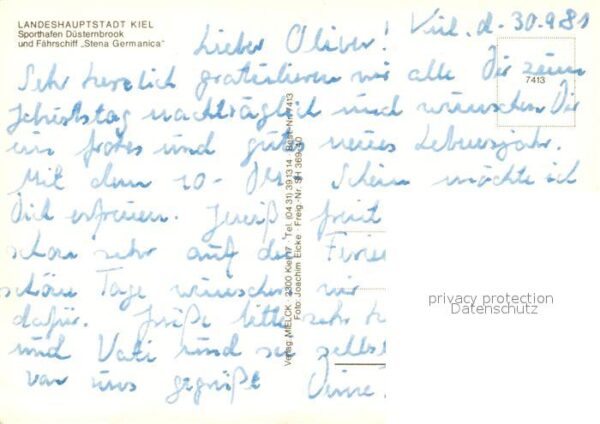 LANDESHAUPTSTADT KIEL
Sporthafen Düsternbrook
und Fährschiff „Stena Germanica"
Kiel. d. 30.9.81
Lieber Oliver!
Sehr herzlich gratulieren wir alle Dir zum
7413
Geburtstag nachträglich und wünschen Dir
ein frohes und gutes neues Lebensjahr.
Mit dem 10- DM Schein möchte ich
Dich erfreuen.
schon sehr auf die Ferie
schöne Tage wünschen wir
dafür. Grüße bitte sehr
und Vati und sei selbst
von uns gegrüßt Deine
Verlag MIELCK · 2300 Kiel 17 · Tel. (04 31) 39 13 14 · Best.-Nr. 7413
Foto Joachim Eicke · Freig.-Nr. SH
privacy protection
Datenschutz